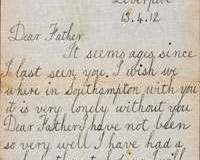 Liverpool
13.4.12
Dear Father
It seems ages since
I last seen you. I wish we
where in Southampton with you
it is very lonely without you
Dear Father I have not been
so very well I have had a